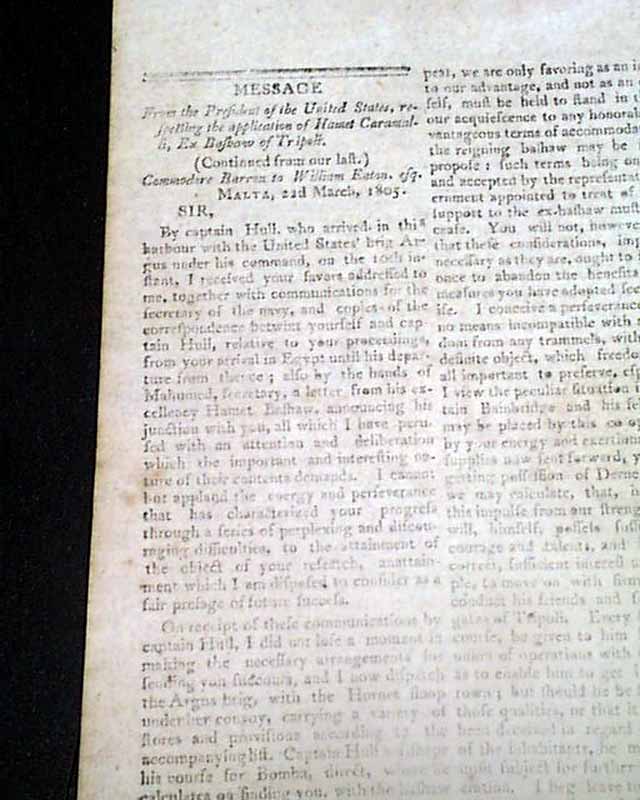 MESSAGE
From the President of the United States, re-
specting the application of Hamet Caramal-
li, Ex Bashaw of Tripoli.
(Continued from our last.)
Commodore Barron to William Eaton, esq.
MALTA, 22d March, 1805.
SIR,
By captain Hull, who arrived in this
harbour with the United States' brig Ar-
gus under his command, on the 10th in-
stant, I received your favors addressed to
me, together with communications for the
secretary of the navy, and copies of the
correspondence betwixt yourself and cap-
tain Hull, relative to your proceedings,
from your arrival in Egypt until his depar-
ture from thence; also by the hands of
Mahumed, secretary, a letter from his ex-
cellency Hamet Bashaw, announcing his
junction with you, all which I have peru-
sed with an attention and deliberation
which the important and interesting na-
ture of their contents demands. I cannot
but applaud the energy and perseverance
that has characterized your progress
through a series of perplexing and discou-
raging difficulties, to the attainment of
the object of your research, an attain-
ment which I am disposed to consider as a
fair presage of future success.
On receipt of these communications by
captain Hull, I did not lose a moment in
making the necessary arrangements for
sending you succours, and I now dispatch
the Argus brig, with the Hornet sloop
under her convoy, carrying a variety of
stores and provisions according to the
accompanying list. Captain Hull shape
his course for Bomba, direct, where
calculates on finding you, with the bashaw
peat, we are only favoring as an
to our advantage, and not as an
self, must be held to stand in
our acquiescence to any honorable
vantageous terms of accommoda
the reigning bashaw may be
propose: such terms being on
and accepted by the representat
ernment appointed to treat of
support to the ex-bashaw must
cease. You will not, however
that these considerations, imp
necessary as they are, ought to
once to abandon the benefits
measures you have adopted sec
ise. I conceive a perseverance
no means incompatible with
dom from any trammels, with
definite object, which freedo
all important to preserve, esp
I view the peculiar situation
tain Bainbridge and his
may be placed by this co op
by your energy and exertion
supplies now sent forward,
getting possession of Derne
we may calculate, that,
this impulse from our streng
will, himself, possess suf
courage and talents, and
correct, sufficient interest
ple, to move on with
conduct his friends and
gates of Tripoli. Every
course, be given to him
of operations with
as to enable him to get
town; but should he be
those qualities, or that it
been deceived in regard
of the inhabitants, he
subject for further
I beg leave